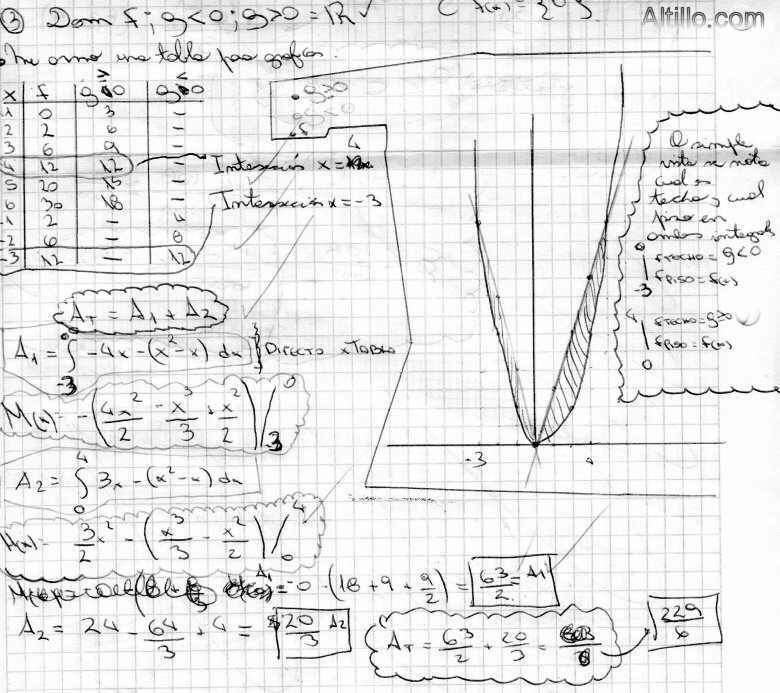 ③ Dom f; g<0; g>0 = ℝ ✓
Altillo.com
Me armo una tabla para graficar.
x | f | g≥0 | g<0
1 | 0 | 3 | -
2 | 2 | 6 | -
3 | 6 | 9 | -
4 | 12 | 12 | -
5 | 20 | 15 | -
6 | 30 | 18 | -
-1 | 2 | - | 4
-2 | 6 | - | 8
-3 | 12 | - | 12
g>0
g<0
f
Intersección x = 4
Intersección x = -3
A simple
vista se nota
cual es
techo y cual
piso en
ambas integrales
0
fTECHO = g<0
fPISO = f(x)
-3
4
fTECHO = g>0
fPISO = f(x)
0
A_T = A_1 + A_2
A_1 = ∫ 0 -3 -4x - (x² - x) dx } DIRECTO x TABLA
M(x) = -(4x²/2 - x³/3 + x²/2) |0 3
A_2 = ∫ 4 0 3x - (x² - x) dx
H(x) = 3/2 x² - (x³/3 - x²/2) |4 0
-3
4
A_1 = 0 - (18 + 9 + 9/2) = 63/2 = A_1
A_2 = 24 - 64/3 + 4 = 20/3 A_2
A_T = 63/2 + 20/3 =
229/6